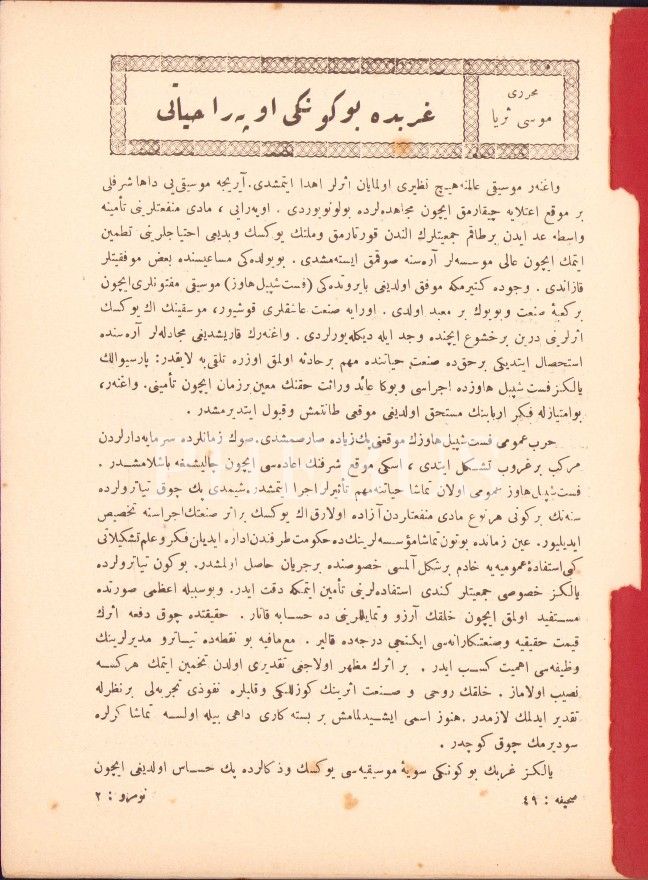 محررى
موسى ثريا
غربده بوكونكى اوپه را حياتى
واغنه‌ر موسيقى عالمنه هيچ نظيرى اولمايان اثرلر اهدا ايتمشدى. آيريجه موسيقى‌يى داها شرفلى
بر موقع اعتلايه چيقارمق ايچون مجاهده‌لرده بولونويوردى . اوپه‌رايى ، مادى منفعتلرينى تأمينه
واسطه عد ايدن برطاقم جمعيتلرك الندن قورتارمق وملتك يوكسك وبديعى احتياجلرينى تطمين
ايتمك ايچون عالى موسسه‌لر آره‌سنه صوقمق ايسته‌مشدى . بويولده‌كى مساعيسنده بعض موفقيتلر
قازاندى . وجوده كتيرمكه موفق اولديغى بايروتده‌كى (فست شپيل هاوز) موسيقى مفتونلرى ايچون
بر كعبۀ صنعت وبويوك بر معبد اولدى . اورايه صنعت عاشقلرى قوشيور، موسقينك اك يوكسك
اثرلرينى درين برخشوع ايچنده وجد ايله ديكله‌يورلردى . واغنه‌رك قاريشديغى مجادله‌لر آره‌سنده
استحصال ايتديكى برحق‌ده صنعت حياتنده مهم برحادثه اولمق اوزره تلقى‌يه لايقدر: پارسيوالك
يالكز فست شپيل هاوزده اجراسى وبوكا عائد وراثت حقنك معين برزمان ايچون تأمينى. واغنه‌ر،
بوامتيازله فكر اربابنك مستحق اولديغى موقعى طانتمش وقبول ايتديرمشدر .
حرب عمومى فست شپيل هاوزك موقعنى پك زياده صارصمشدى. صوك زمانلرده سرمايه‌دارلردن
مركب برغروب تشكل ايتدى ، اسكى موقع شرفنك اعاده‌سى ايچون چاليشمغه باشلامشدر .
فست شپيل هاوز عمومى اولان تماشا حياتنه مهم تأثيرلر اجرا ايتمشدر. شيمدى پك چوق تياترولرده
سنه‌نك بركونى هر نوع مادى منفعتلردن آزاده اولارق اك يوكسك براثر صنعتك اجراسنه تخصيص
ايديليور. عين زمانده بوتون تماشا مؤسسه‌لرينك‌ده حكومت طرفندن اداره ايديان فكر وعلم تشكيلاتى
كى استفادۀ عموميه‌يه خادم برشكل آلمسى خصوصنده برجريان حاصل اولمشدر. بوكون تياترولرده
يالكز خصوصى جمعيتلر كندى استفاده‌لرينى تأمين ايتمكه دقت ايدر. وبوسيله اعظمى صورتده
مستفيد اولمق ايچون خلقك آرزو وتمايللرينى ده حسابه قاتار . حقيقتده چوق دفعه اثرك
قيمت حقيقيه وصنعتكارانه‌سى ايكنجى درجه‌ده قالير . مع‌مافيه بو نقطه‌ده تياترو مديرلرينك
وظيفه‌سى اهميت كسب ايدر . بر اثرك مظهر اولاجغى تقديرى اولدن تخمين ايتمك هركسه
نصيب اولاماز . خلقك روحى و صنعت اثرينك كوزللكى وقابلره نفوذى تجربه‌لى برنظرله
تقدير ايدلمك لازمدر . هنوز اسمى ايشيديلمامش بر بسته كارى داهى بيله اولسه تماشا كرلره
سوديرمك چوق كوچدر .
يالكز غربك بوكونكى سويۀ موسيقيه‌سى يوكسك وذكالرده پك حساس اولديغى ايچون
صحيفه : ٤٩
نومرو : ٢